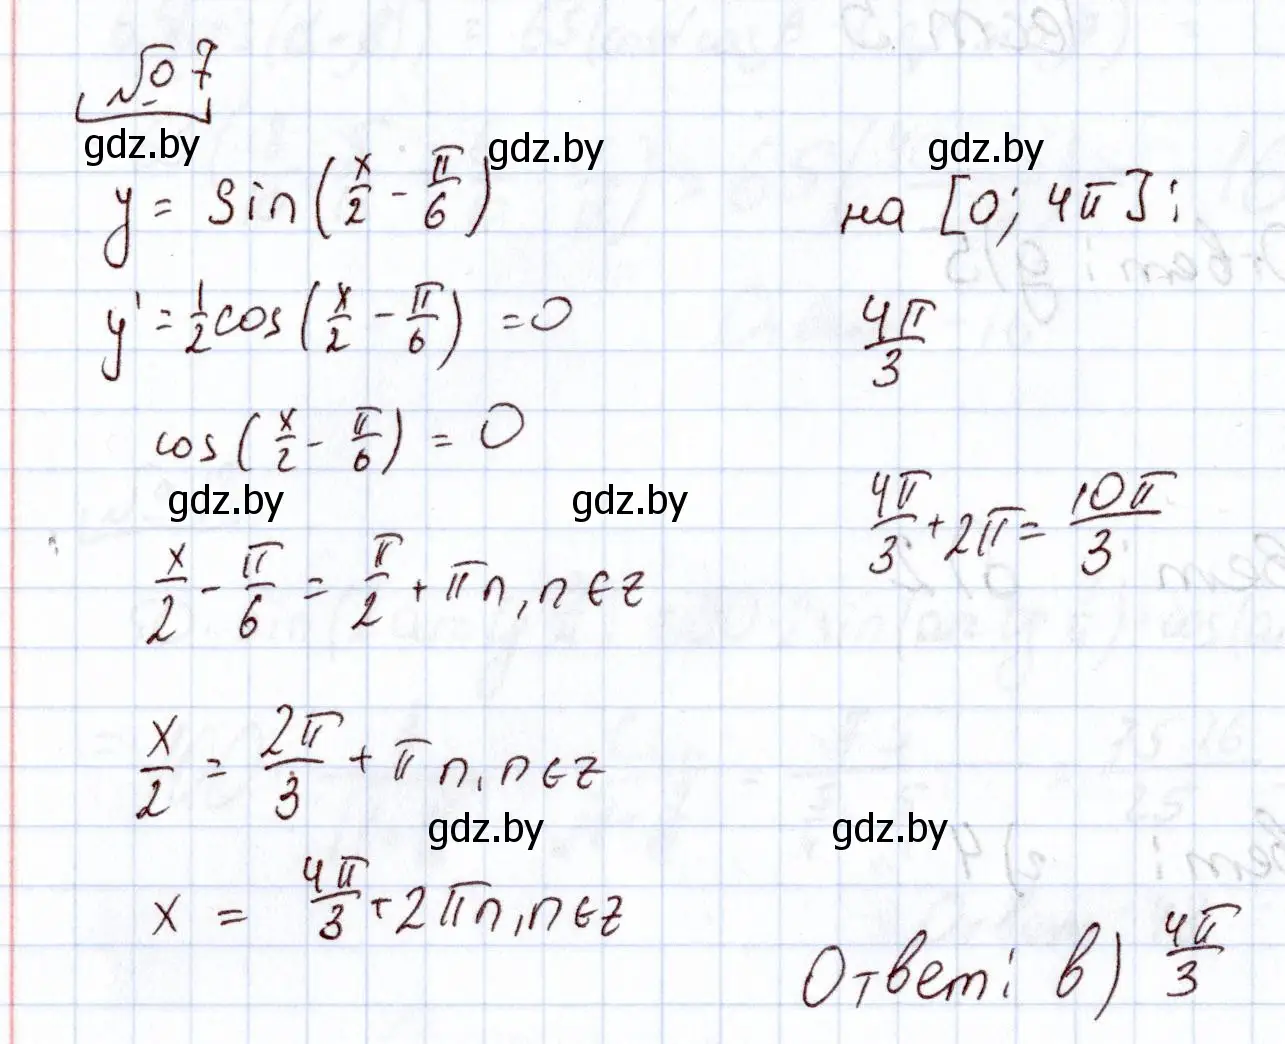 № 7
gdz.by gdz.by gdz.by
y = sin(x/2 - π/6) на [0; 4π]:
y' = 1/2 cos(x/2 - π/6) = 0 4π/3
cos(x/2 - π/6) = 0
gdz.by gdz.by 4π/3 + 2π = 10π/3
x/2 - π/6 = π/2 + πn, n∈z
x/2 = 2π/3 + πn, n∈z
gdz.by gdz.by
x = 4π/3 + 2πn, n∈z
Ответ: в) 4π/3